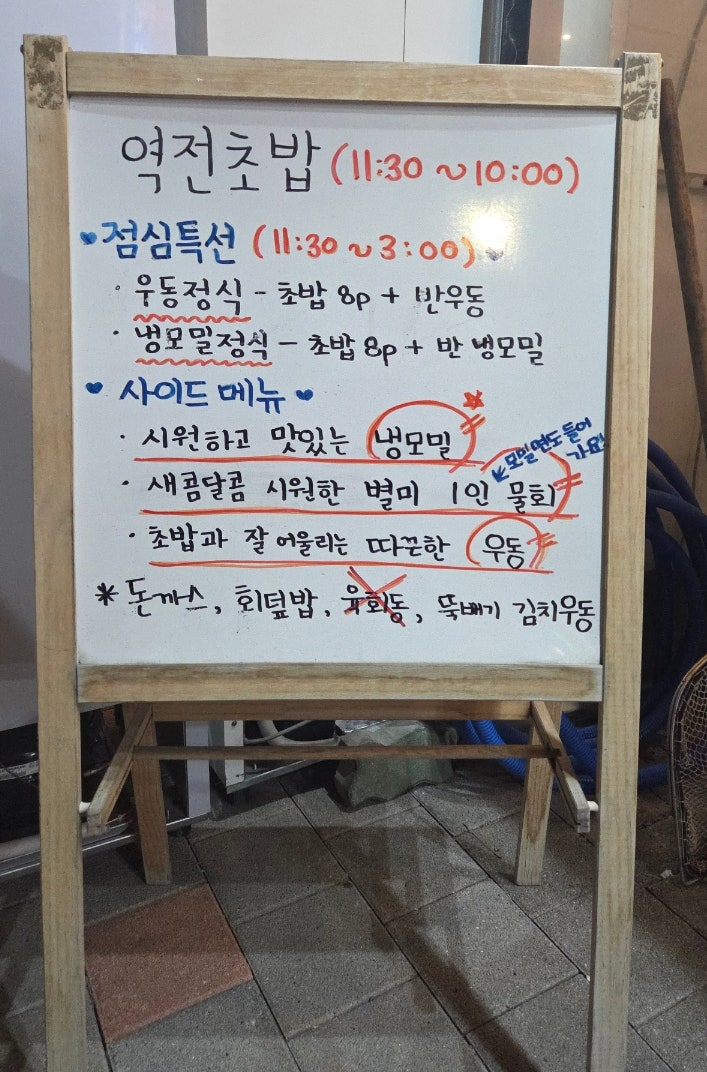 역전초밥 (11:30 ~ 10:00)
♥점심특선 (11:30 ~ 3:00)♥
· 우동정식 - 초밥 8p + 반우동
· 냉모밀정식 - 초밥 8p + 반 냉모밀
♥ 사이드 메뉴 ♥
· 시원하고 맛있는 냉모밀
모밀면도 들어
가요!
· 새콤달콤 시원한 별미 1인 물회
· 초밥과 잘 어울리는 따끈한 우동
* 돈까스, 회덮밥, 육회동, 뚝배기 김치우동